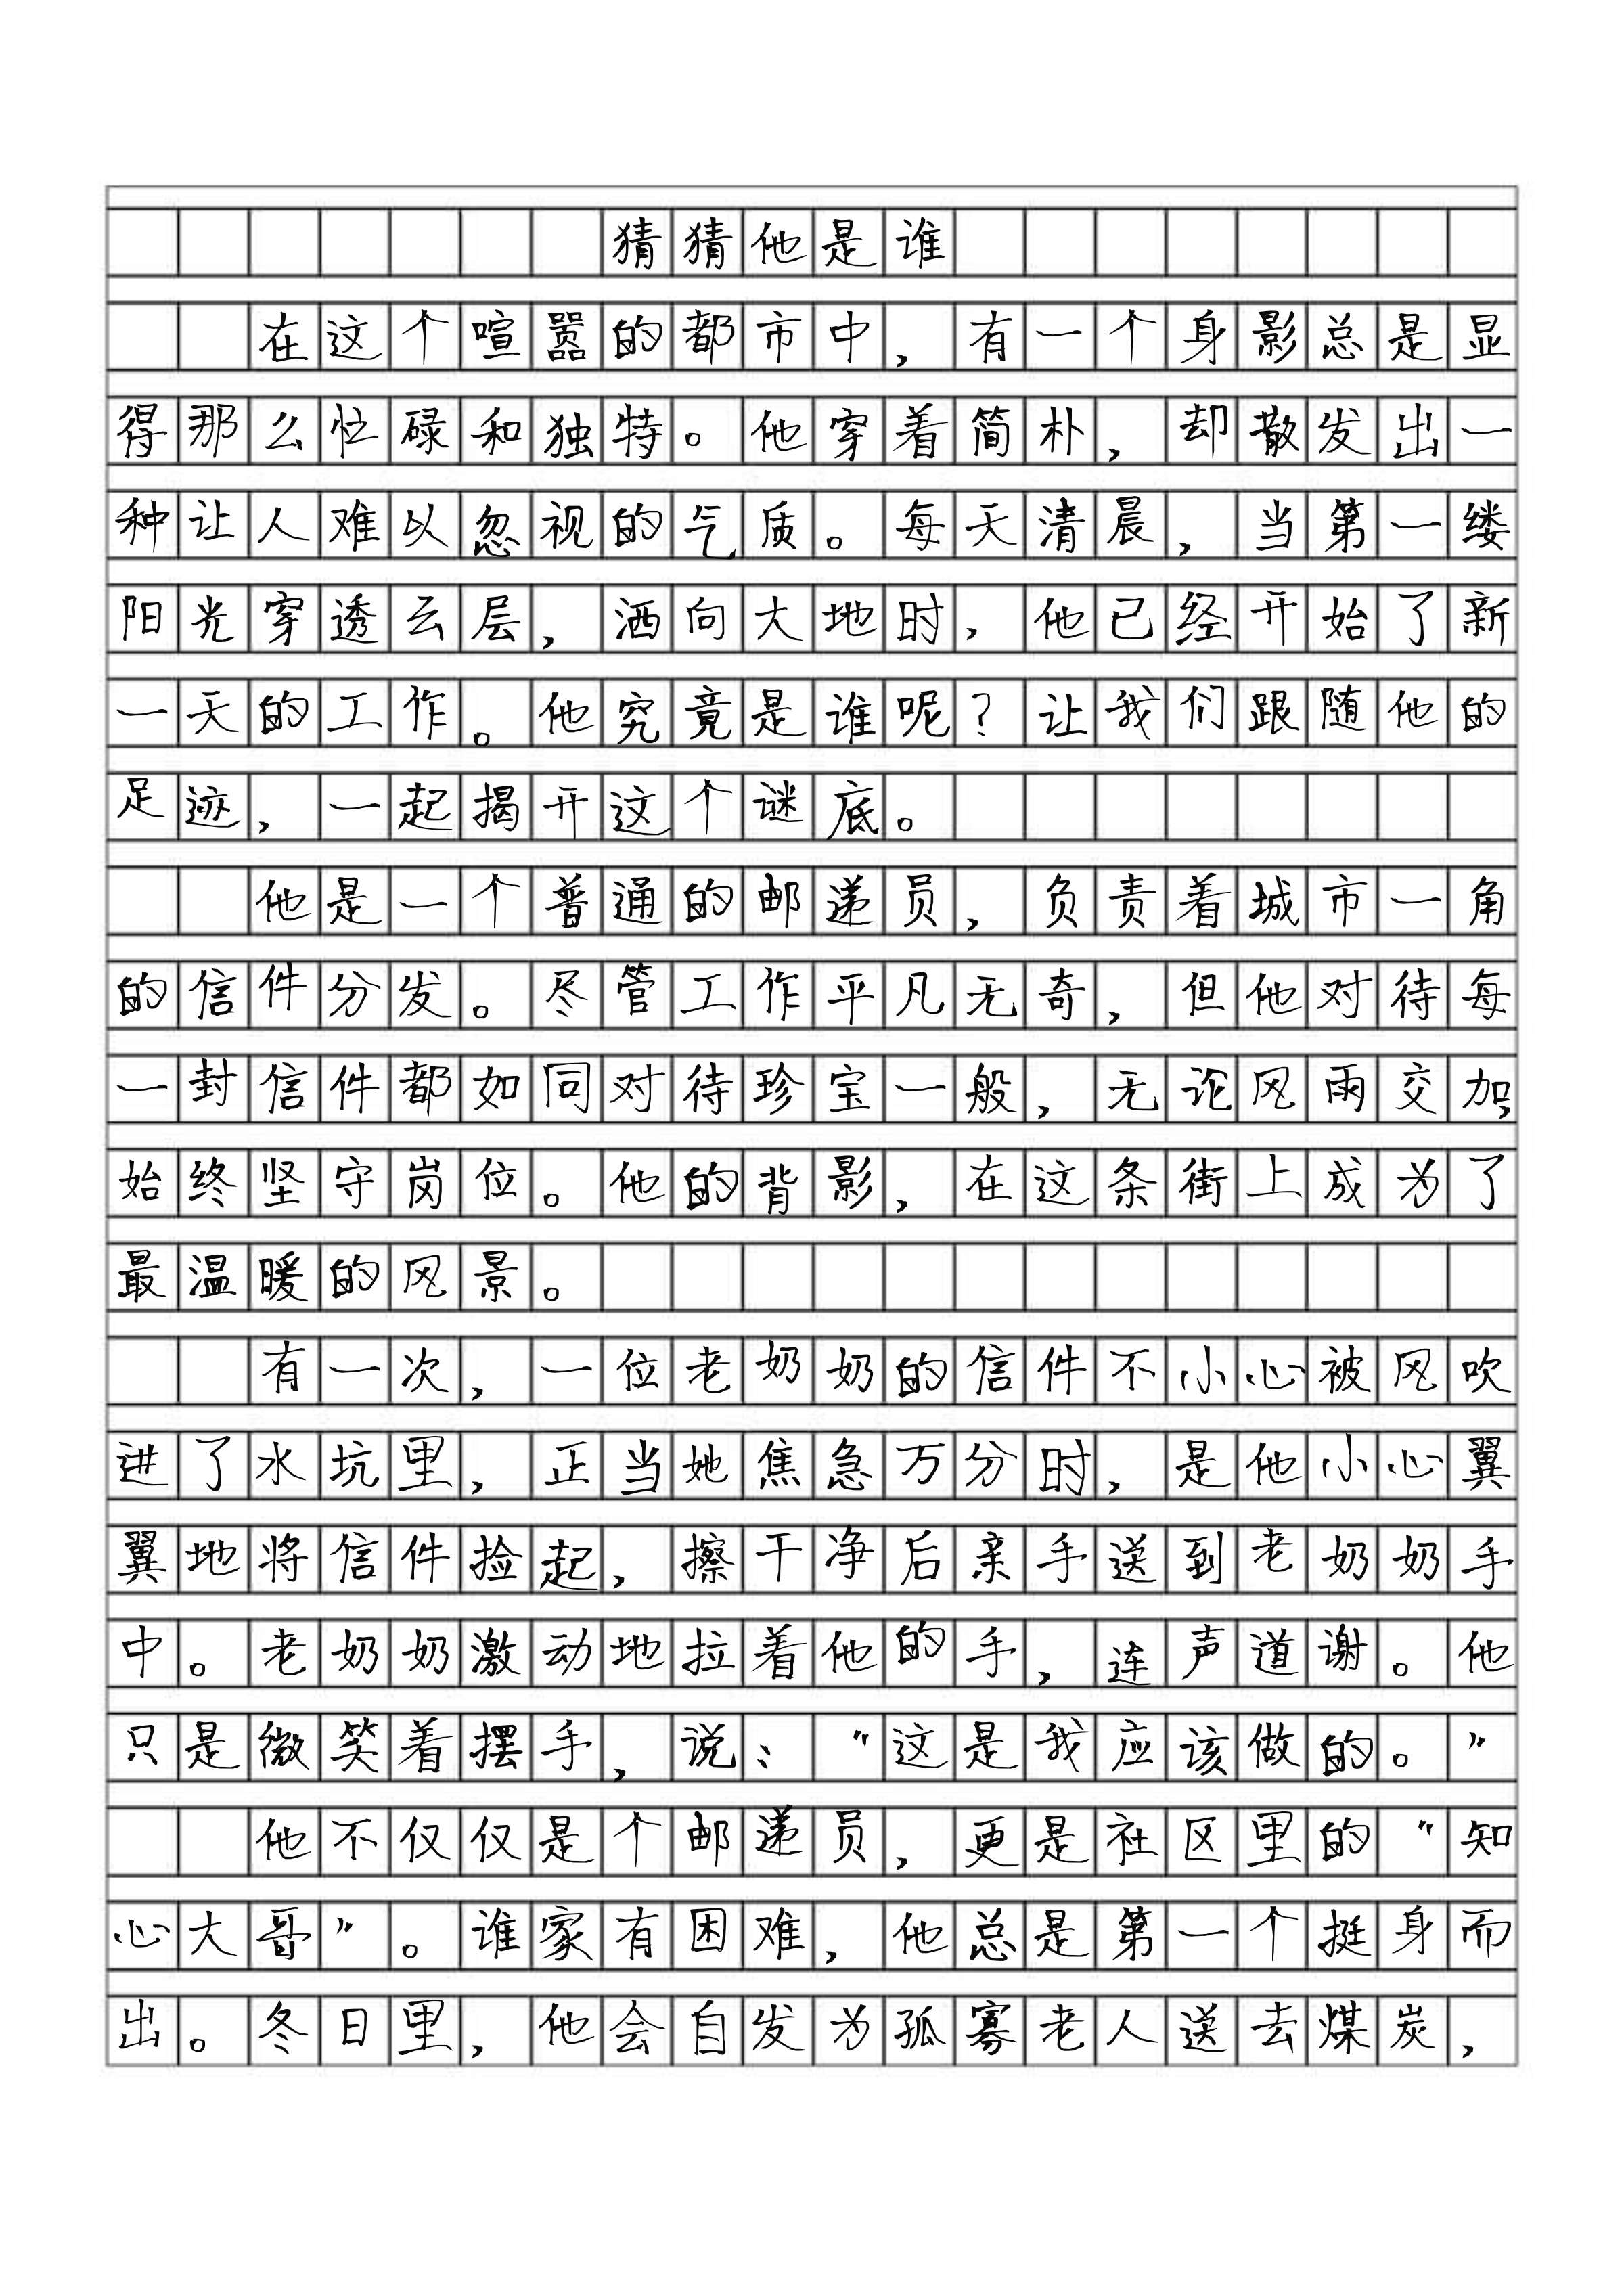 猜猜他是谁
在这个喧嚣的都市中，有一个身影总是显
得那么忙碌和独特。他穿着简朴，却散发出一
种让人难以忽视的气质。每天清晨，当第一缕
阳光穿透云层，洒向大地时，他已经开始了新
一天的工作。他究竟是谁呢？让我们跟随他的
足迹，一起揭开这个谜底。
他是一个普通的邮递员，负责着城市一角
的信件分发。尽管工作平凡无奇，但他对待每
一封信件都如同对待珍宝一般，无论风雨交加，
始终坚守岗位。他的背影，在这条街上成为了
最温暖的风景。
有一次，一位老奶奶的信件不小心被风吹
进了水坑里，正当她焦急万分时，是他小心翼
翼地将信件捡起，擦干净后亲手送到老奶奶手
中。老奶奶激动地拉着他的手，连声道谢。他
只是微笑着摆手，说：“这是我应该做的。”
他不仅仅是个邮递员，更是社区里的“知
心大哥”。谁家有困难，他总是第一个挺身而
出。冬日里，他会自发为孤寡老人送去煤炭，